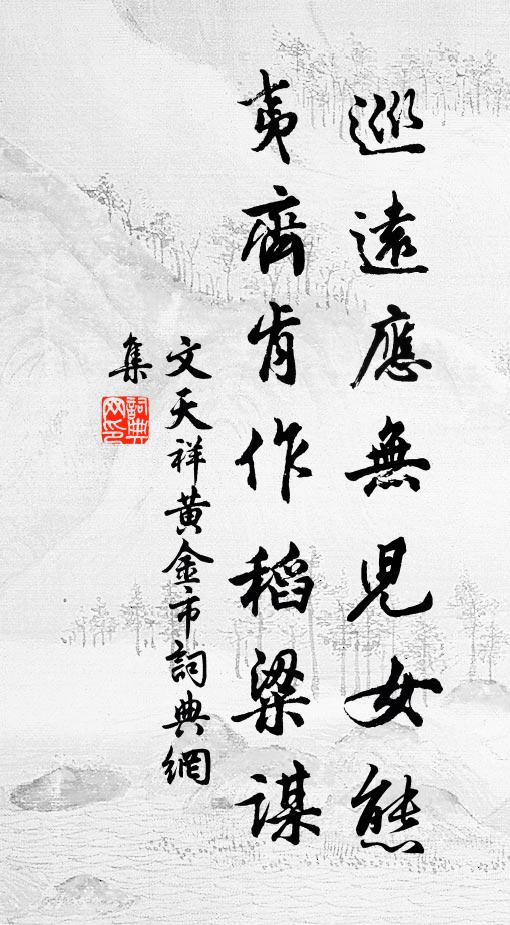 巡遠應無兒女態
夷齊肯作稻粱謀
文天祥黃金市詞典網
集
詞典網印